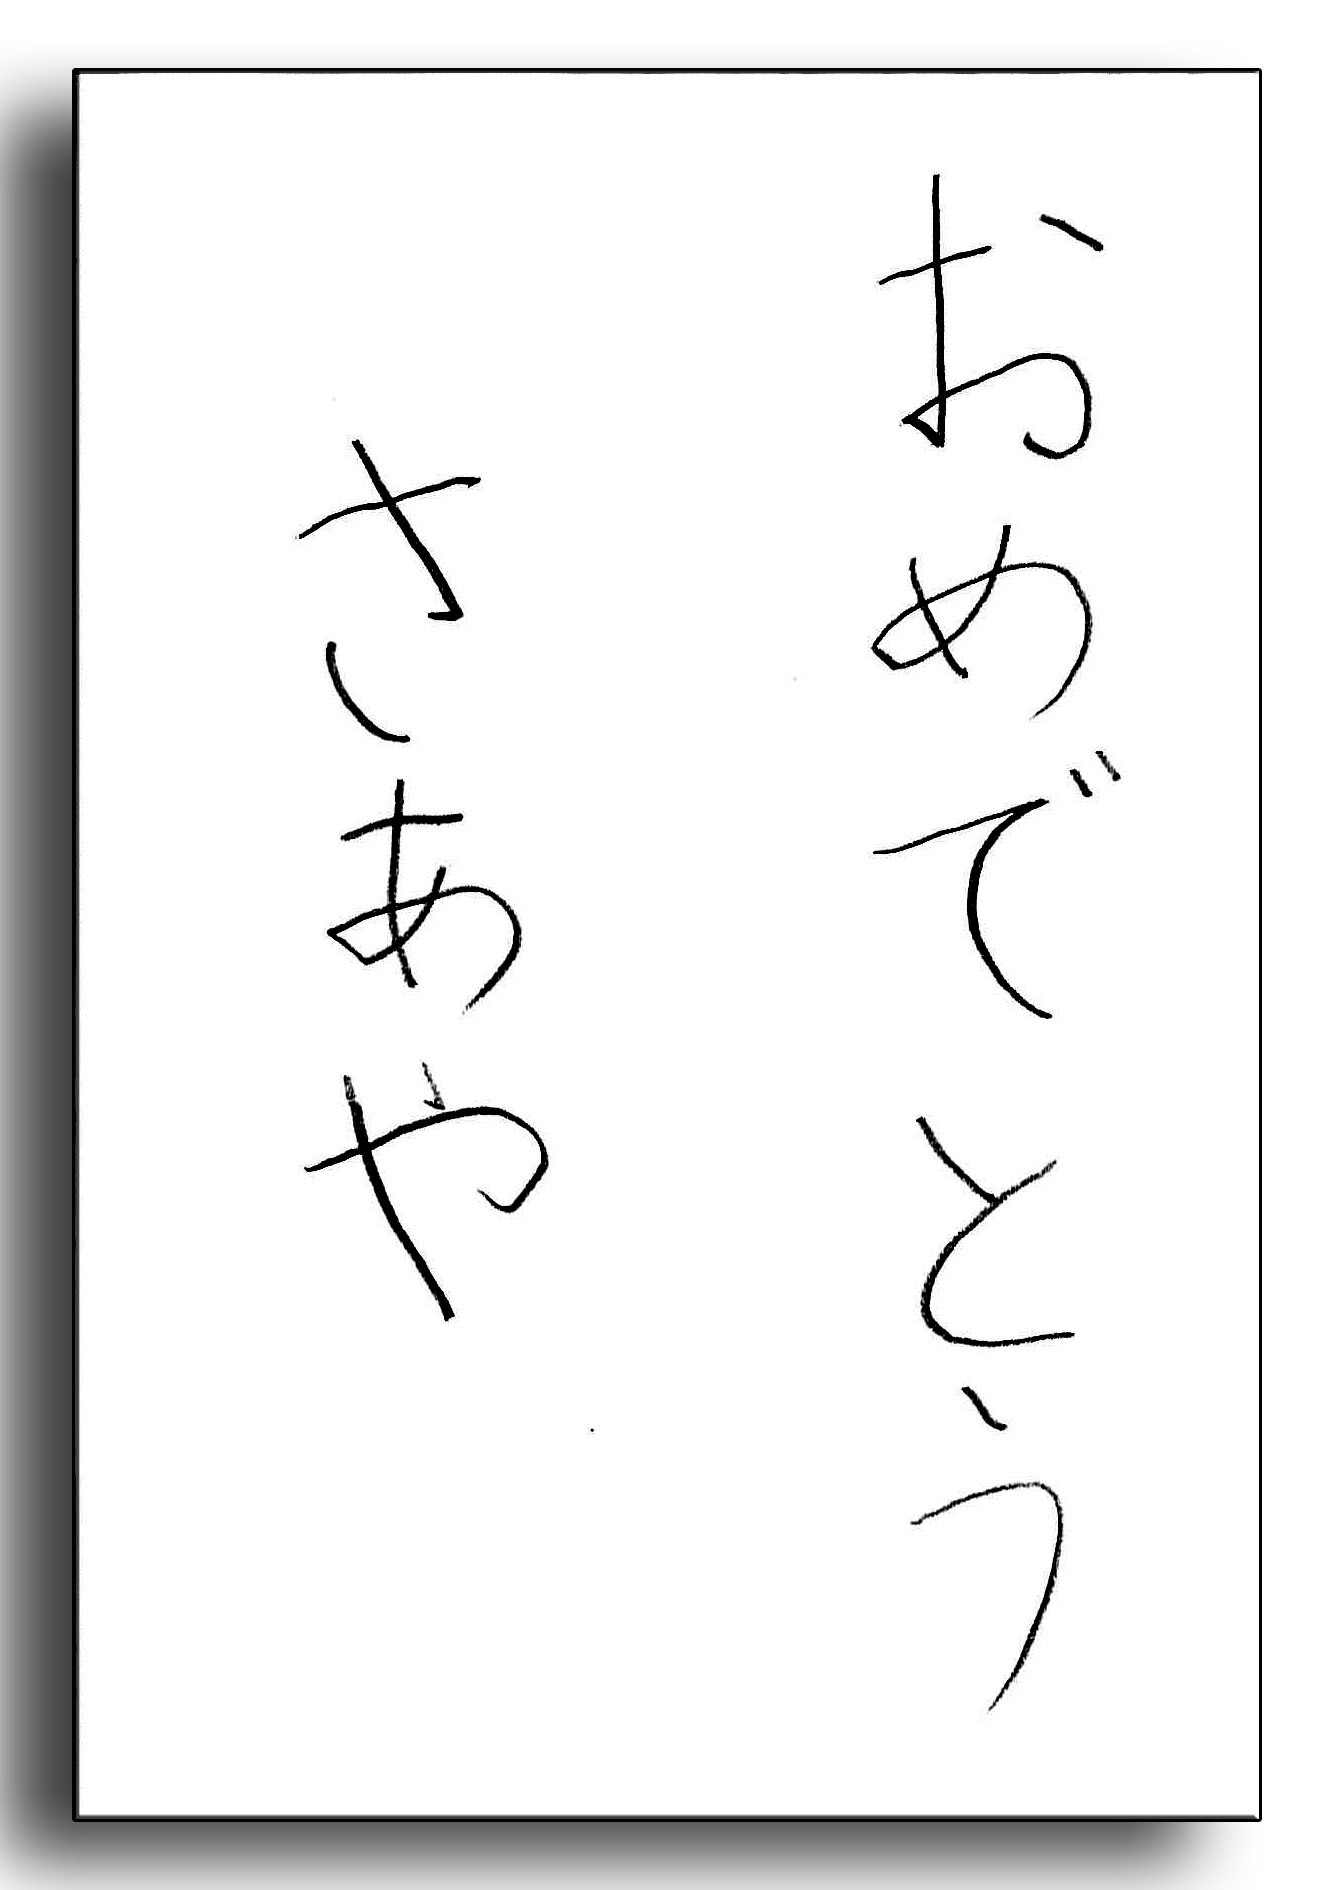 おめでとう
さあや